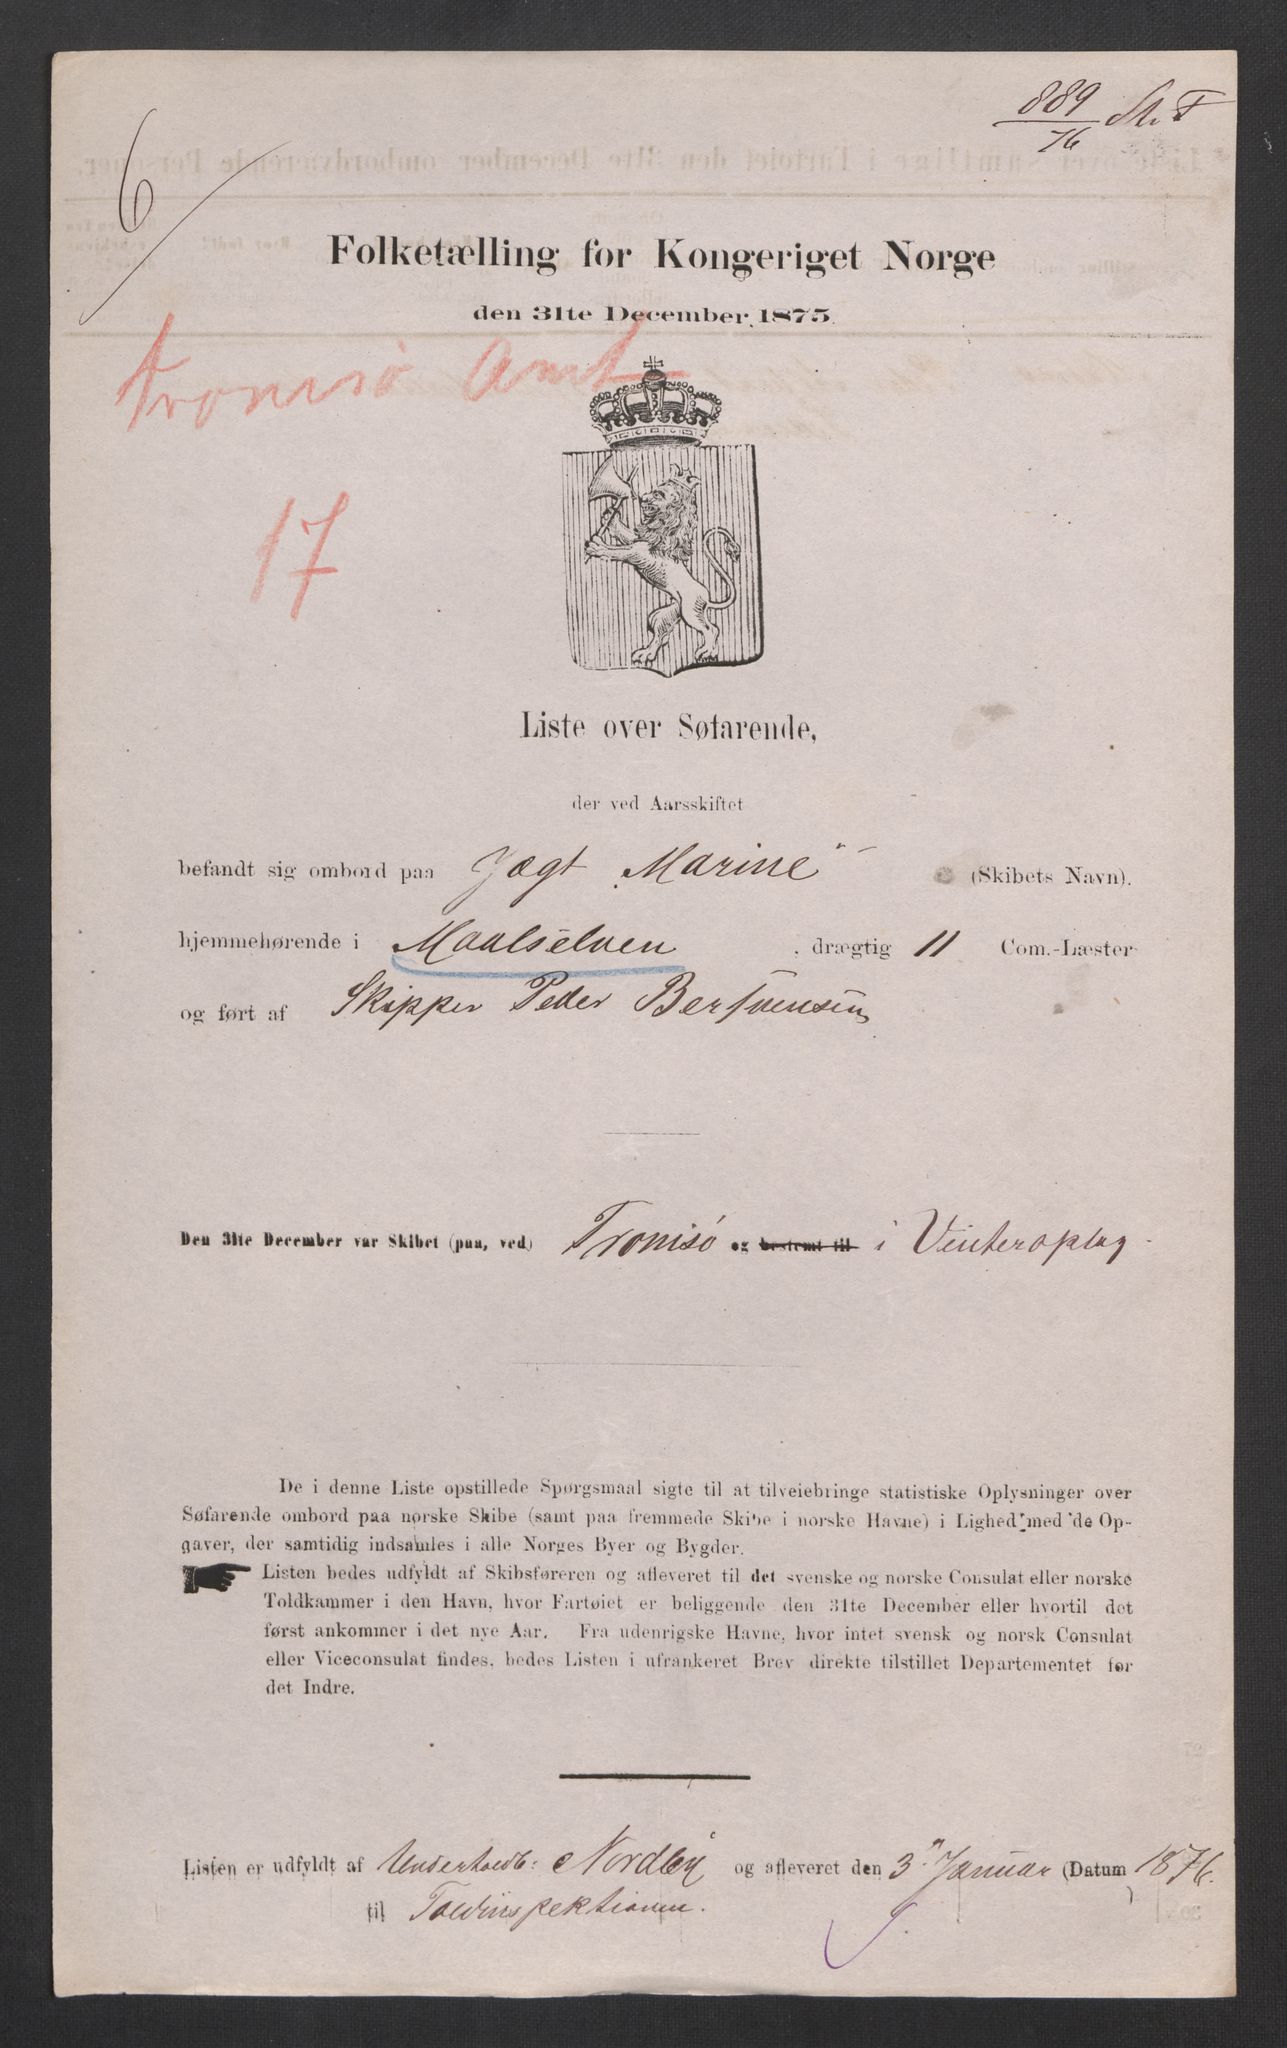 889
76
6
Folketælling for Kongeriget Norge
den 31te December 1875.
Tromsö Amt
17
Liste over Søfarende,
der ved Aarsskiftet
befandt sig ombord paa Jægt „Marine" (Skibets Navn).
hjemmehørende i Maalselven , drægtig 11 Com.-Læster
og ført af Skipper Peder
Den 31te December var Skibet (paa, ved) Tromsö og bestemt til i Vinteroplag
De i denne Liste opstillede Spørgsmaal sigte til at tilveiebringe statistiske Oplysninger over
Søfarende ombord paa norske Skibe (samt paa fremmede Skibe i norske Havne) i Lighed med de Op-
gaver, der samtidig indsamles i alle Norges Byer og Bygder.
Listen bedes udfyldt af Skibsføreren og afleveret til det svenske og norske Consulat eller norske
Toldkammer i den Havn, hvor Fartøiet er beliggende den 31te December eller hvortil det
først ankommer i det nye Aar. Fra udenrigske Havne, hvor intet svensk og norsk Consulat
eller Viceconsulat findes, bedes Listen i ufrankeret Brev direkte tilstillet Departementet for
det Indre.
Listen er udfyldt af Nordby og afleveret den 3 Januar (Datum 1876.
til Toldinspektionen. )